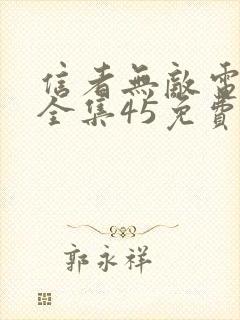 信者無敵電
全集45免費
郭永祥